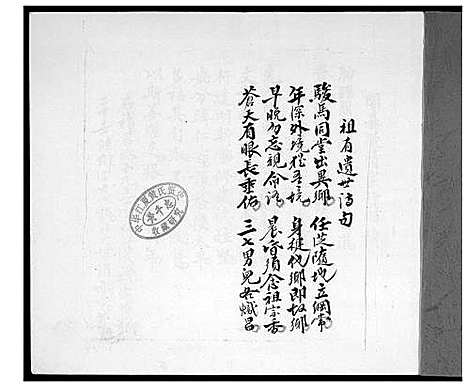 祖有遺世詩句
駿馬同堂出異鄉 任從隨地立綱常
年深外境猶吾境 身健他鄉即故鄉
早晚勿忘親命語 晨昏須念祖宗香
蒼天有眼長垂佑 三七男兒總熾昌